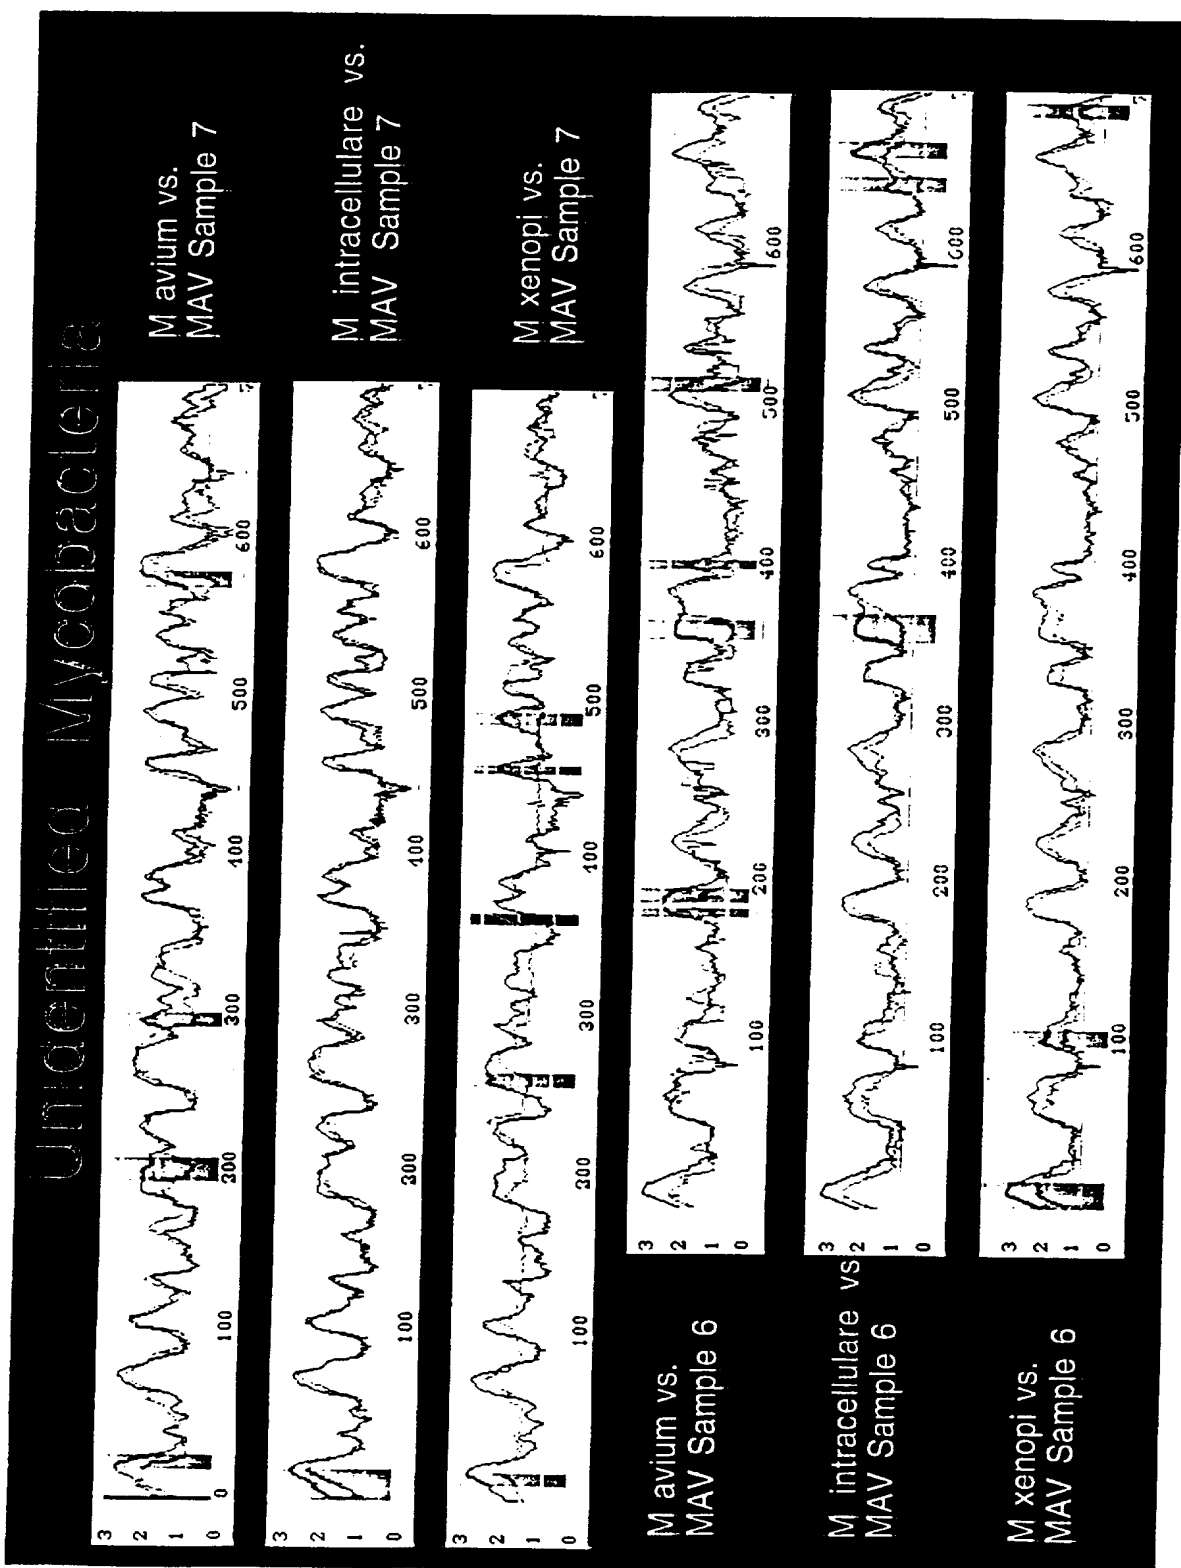 Unidentified Mycobacteria
M avium vs.
MAV Sample 7
3
2
1
0
0
100
200
300
400
500
600
M intracellulare vs.
MAV Sample 7
3
2
1
0
100
200
300
400
500
600
M xenopi vs.
MAV Sample 7
3
2
1
0
100
200
300
400
500
600
M avium vs.
MAV Sample 6
3
2
1
0
100
200
300
400
500
600
M intracellulare vs
MAV Sample 6
3
2
1
0
100
200
300
400
500
600
M xenopi vs.
MAV Sample 6
3
2
1
0
100
200
300
400
500
600